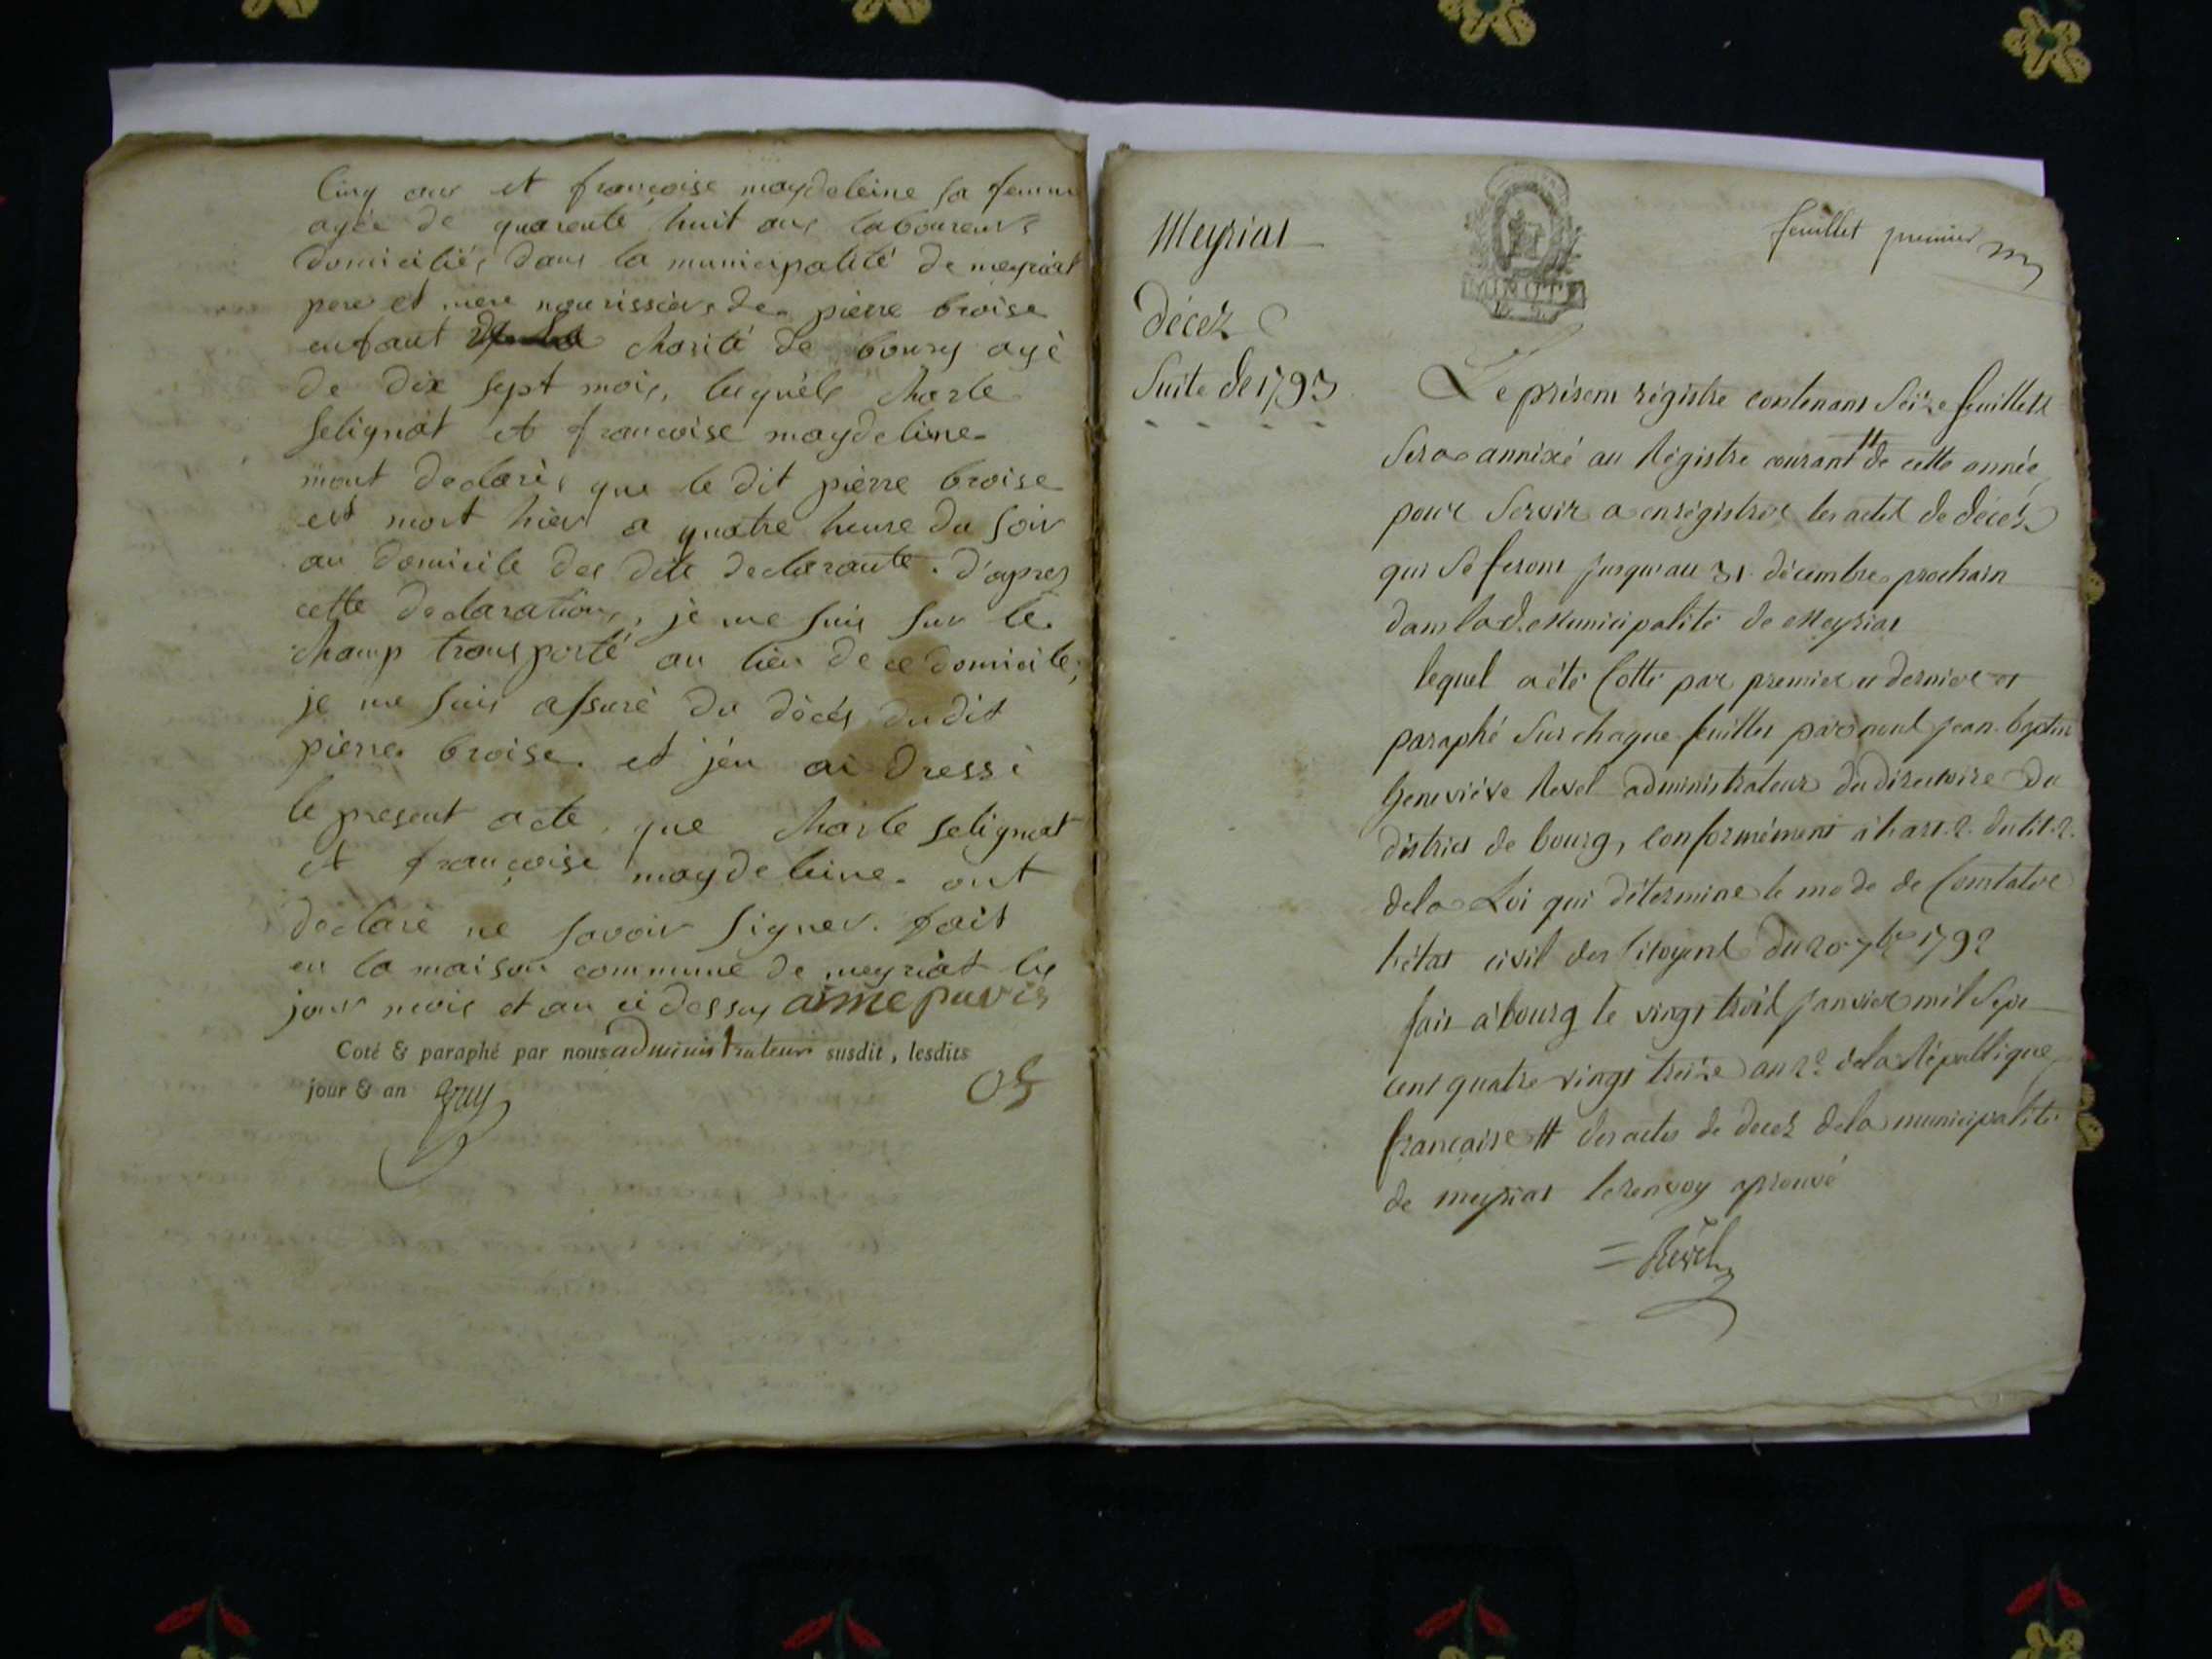 Cinq ans et françoise maydeleine sa femme
agée de quarente huit ans laboureurs
domiciliés dans la municipalité de meyriat
pere et mere nourissiers de pierre broise
enfant charité de bourg agé
de dix sept mois, lesquels charle
selignat et francoise maydeleine
mont declarés que le dit pierre broise
est mort hier a quatre heure du soir
au domicile des dits declarante. d'apres
cette declaration, je me suis sur le
champ transporté au lieu de ce domicile,
je me suis assuré du décés dudit
pierre broise. et j'en ai dressé
le present acte, que charle selignat
et françoise maydeleine ont
declaré ne savoir signer. fait
en la maison commune de meyriat les
jour mois et an ci dessus aimé puvis
Coté & paraphé par nous administrateur susdit, lesdits
jour & an
Meyriat
décez
Suite de 1793
MINUTE
feuillet premier
Le présent régistre contenant Seize feuillets
Sera annéxé au Régistre courant # de cette année,
pour Servir a enrégistrer les actes de décés
qui Se feront jusqu'au 31 décembre prochain
dans lad. Municipalité de Meyriat
lequel a été Cotté par premier et dernier et
paraphé Sur chaque feuillet par nous jean-baptiste
Geneviéve Revel administrateur du directoire du
district de bourg, conformément à l'art. 2. du tit. 2.
de la Loi qui détermine le mode de Constater
l'état civil des Citoyens du 20 7bre 1792
fait à bourg le vingt trois janvier mil Sept
cent quatre vingt treize an 2e de la Républlique
francaise # des actes de decez de la municipalité
de meyriat le renvoy aprouvé
Revel